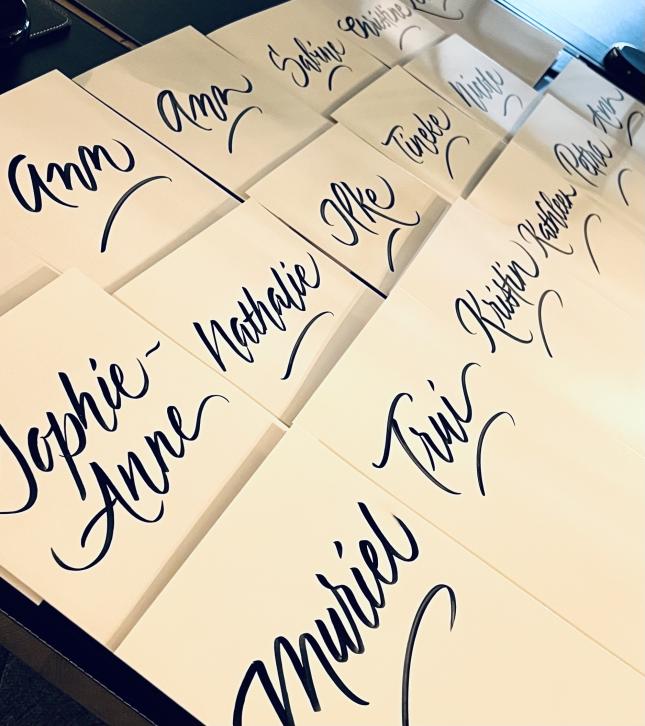 Christine
Sabine
Ann
Ann
Tineke
Ilke
Nathalie
Sophie-
Anne
Ann
Petra
Kathleen
Kristin
Trui
Muriel